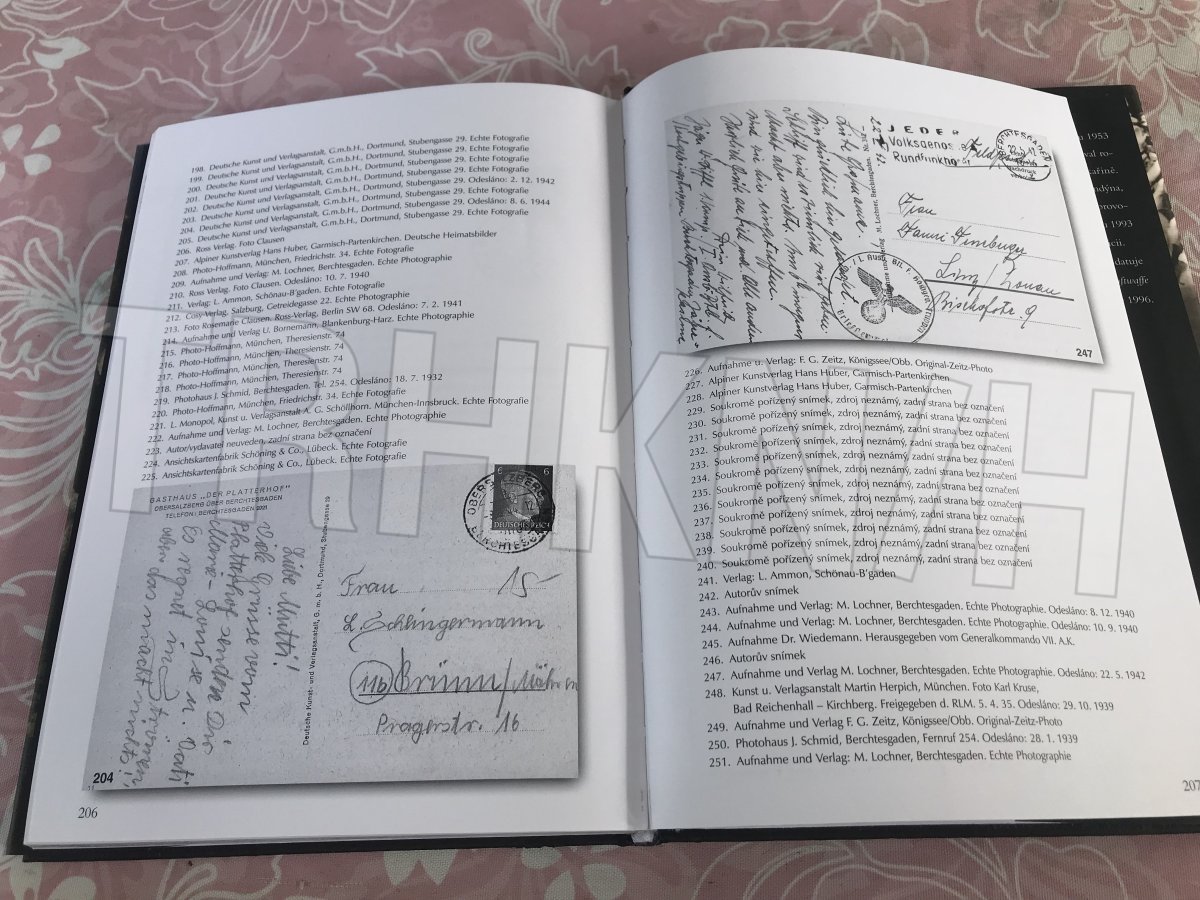 198. Deutsche Kunst und Verlagsanstalt, G.m.b.H., Dortmund, Stubengasse 29. Echte Fotografie
199. Deutsche Kunst und Verlagsanstalt, G.m.b.H., Dortmund, Stubengasse 29. Echte Fotografie
200. Deutsche Kunst und Verlagsanstalt, G.m.b.H., Dortmund, Stubengasse 29. Echte Fotografie
201. Deutsche Kunst und Verlagsanstalt, G.m.b.H., Dortmund, Stubengasse 29. Echte Fotografie
202. Deutsche Kunst und Verlagsanstalt, G.m.b.H., Dortmund, Stubengasse 29. Odesláno: 2. 12. 1942
203. Deutsche Kunst und Verlagsanstalt, G.m.b.H., Dortmund, Stubengasse 29. Echte Fotografie
204. Deutsche Kunst und Verlagsanstalt, G.m.b.H., Dortmund, Stubengasse 29. Odesláno: 8. 6. 1944
205. Deutsche Kunst und Verlagsanstalt, G.m.b.H., Dortmund, Stubengasse 29. Echte Fotografie
206. Ross Verlag. Foto Clausen
207. Alpiner Kunstverlag Hans Huber, Garmisch-Partenkirchen. Deutsche Heimatsbilder
208. Photo-Hoffmann, München, Friedrichstr. 34. Echte Fotografie
209. Aufnahme und Verlag: M. Lochner, Berchtesgaden. Echte Photographie
210. Ross Verlag. Foto Clausen. Odesláno: 10. 7. 1940
211. Verlag: L. Ammon, Schönau-B'gaden. Echte Fotografie
212. Cosy-Verlag, Salzburg, Getreidegasse 22. Echte Photographie
213. Foto Rosemarie Clausen. Ross-Verlag, Berlin SW 68. Odesláno: 7. 2. 1941
214. Aufnahme und Verlag U. Bornemann, Blankenburg-Harz. Echte Photographie
215. Photo-Hoffmann, München, Theresienstr. 74
216. Photo-Hoffmann, München, Theresienstr. 74
217. Photo-Hoffmann, München, Theresienstr. 74
218. Photo-Hoffmann, München, Theresienstr. 74
219. Photohaus J. Schmid, Berchtesgaden. Tel. 254. Odesláno: 18. 7. 1932
220. Photo-Hoffmann, München, Friedrichstr. 34. Echte Fotografie
221. L. Monopol, Kunst u. Verlagsanstalt A. G. Schöllhorn. München-Innsbruck. Echte Fotografie
222. Aufnahme und Verlag: M. Lochner, Berchtesgaden. Echte Photographie
223. Autor/vydavatel neuveden, zadní strana bez označení
224. Ansichtskartenfabrik Schöning & Co., Lübeck. Echte Fotografie
225. Ansichtskartenfabrik Schöning & Co., Lübeck. Echte Fotografie
GASTHAUS „DER PLATTERHOF"
OBERSALZBERG ÜBER BERCHTESGADEN
TELEFON: BERCHTESGADEN
Liebe Mutti!
Viele Grüsse vom
Platterhof senden Dir
Louise u. Vati
Es regnet in Strömen,
aber das macht nichts!
Deutsche Kunst- und Verlagsanstalt, G. m. b. H., Dortmund, Stubengasse 29
6 6
DEUTSCHES REICH
OBERSALZBERG
BERCHTESGADEN
Frau
Schlingermann
(11b) Brünn/Mähren
Pragerstr. 16
204
206
JEDER
Volksgenosse
Rundfunk
BERCHTESGADEN
Frau
Linz/Donau
Bischofstr. 9
247
226. Aufnahme u. Verlag: F. G. Zeitz, Königssee/Obb. Original-Zeitz-Photo
227. Alpiner Kunstverlag Hans Huber, Garmisch-Partenkirchen
228. Alpiner Kunstverlag Hans Huber, Garmisch-Partenkirchen
229. Soukromě pořízený snímek, zdroj neznámý, zadní strana bez označení
230. Soukromě pořízený snímek, zdroj neznámý, zadní strana bez označení
231. Soukromě pořízený snímek, zdroj neznámý, zadní strana bez označení
232. Soukromě pořízený snímek, zdroj neznámý, zadní strana bez označení
233. Soukromě pořízený snímek, zdroj neznámý, zadní strana bez označení
234. Soukromě pořízený snímek, zdroj neznámý, zadní strana bez označení
235. Soukromě pořízený snímek, zdroj neznámý, zadní strana bez označení
236. Soukromě pořízený snímek, zdroj neznámý, zadní strana bez označení
237. Soukromě pořízený snímek, zdroj neznámý, zadní strana bez označení
238. Soukromě pořízený snímek, zdroj neznámý, zadní strana bez označení
239. Soukromě pořízený snímek, zdroj neznámý, zadní strana bez označení
240. Soukromě pořízený snímek, zdroj neznámý, zadní strana bez označení
241. Verlag: L. Ammon, Schönau-B'gaden
242. Autorův snímek
243. Aufnahme und Verlag: M. Lochner, Berchtesgaden. Echte Photographie. Odesláno: 8. 12. 1940
244. Aufnahme und Verlag: M. Lochner, Berchtesgaden. Echte Photographie. Odesláno: 10. 9. 1940
245. Aufnahme Dr. Wiedemann. Herausgegeben vom Generalkommando VII. A.K.
246. Autorův snímek
247. Aufnahme und Verlag M. Lochner, Berchtesgaden. Echte Photographie. Odesláno: 22. 5. 1942
248. Kunst u. Verlagsanstalt Martin Herpich, München. Foto Karl Kruse,
Bad Reichenhall – Kirchberg. Freigegeben d. RLM. 5. 4. 35. Odesláno: 29. 10. 1939
249. Aufnahme und Verlag F. G. Zeitz, Königssee/Obb. Original-Zeitz-Photo
250. Photohaus J. Schmid, Berchtesgaden, Fernruf 254. Odesláno: 28. 1. 1939
251. Aufnahme und Verlag: M. Lochner, Berchtesgaden. Echte Photographie
207
1953
1993
1996.
TRHKNIH